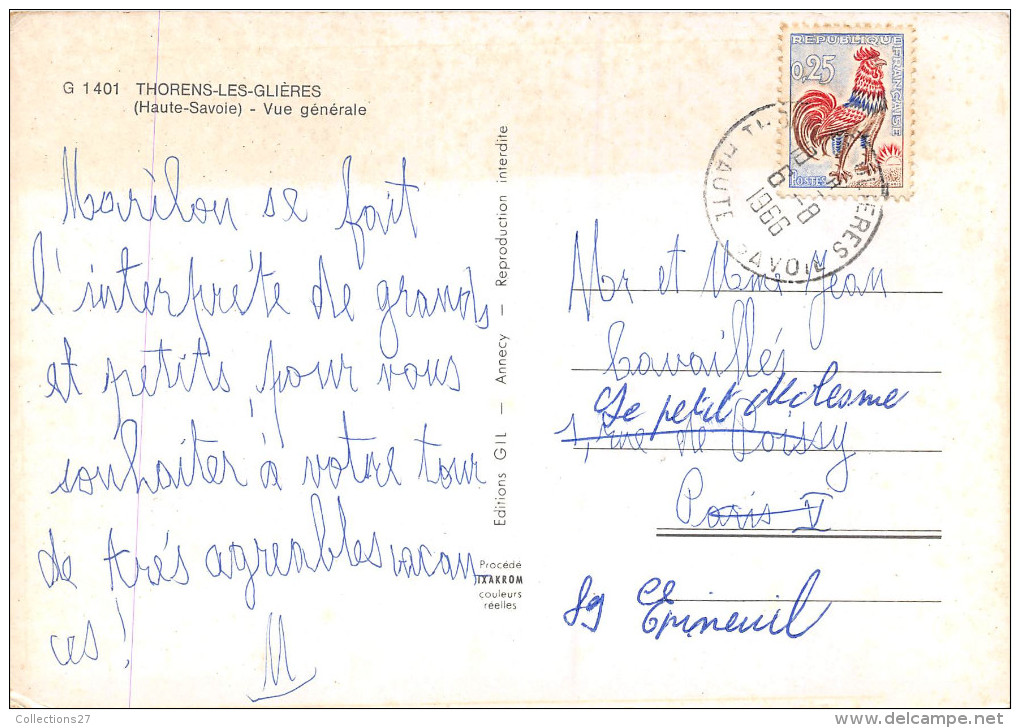 G 1401 THORENS-LES-GLIÈRES
(Haute-Savoie) - Vue générale
Marilou se fait
l'interprète de grands
et petits pour vous
souhaiter à votre tour
de très agréables vacan
ces !
M
Editions GIL — Annecy — Reproduction interdite
Procédé
IXAKROM
couleurs
réelles
REPUBLIQUE FRANÇAISE
0,25
POSTES
6 -8
1966
HAUTE SAVOIE
Mr et Mme Jean
Cavaillés
Le petit
1 rue de Poissy
Paris V
89 Epineuil
Collections27
www.delcampe.net